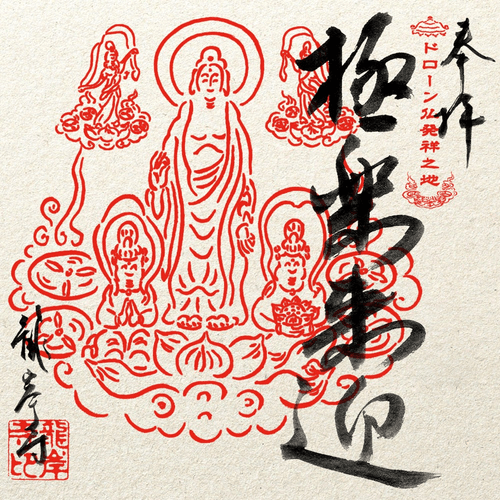 奉拝
ドローン仏発祥之地
極楽来迎
龍岸寺
龍岸寺印